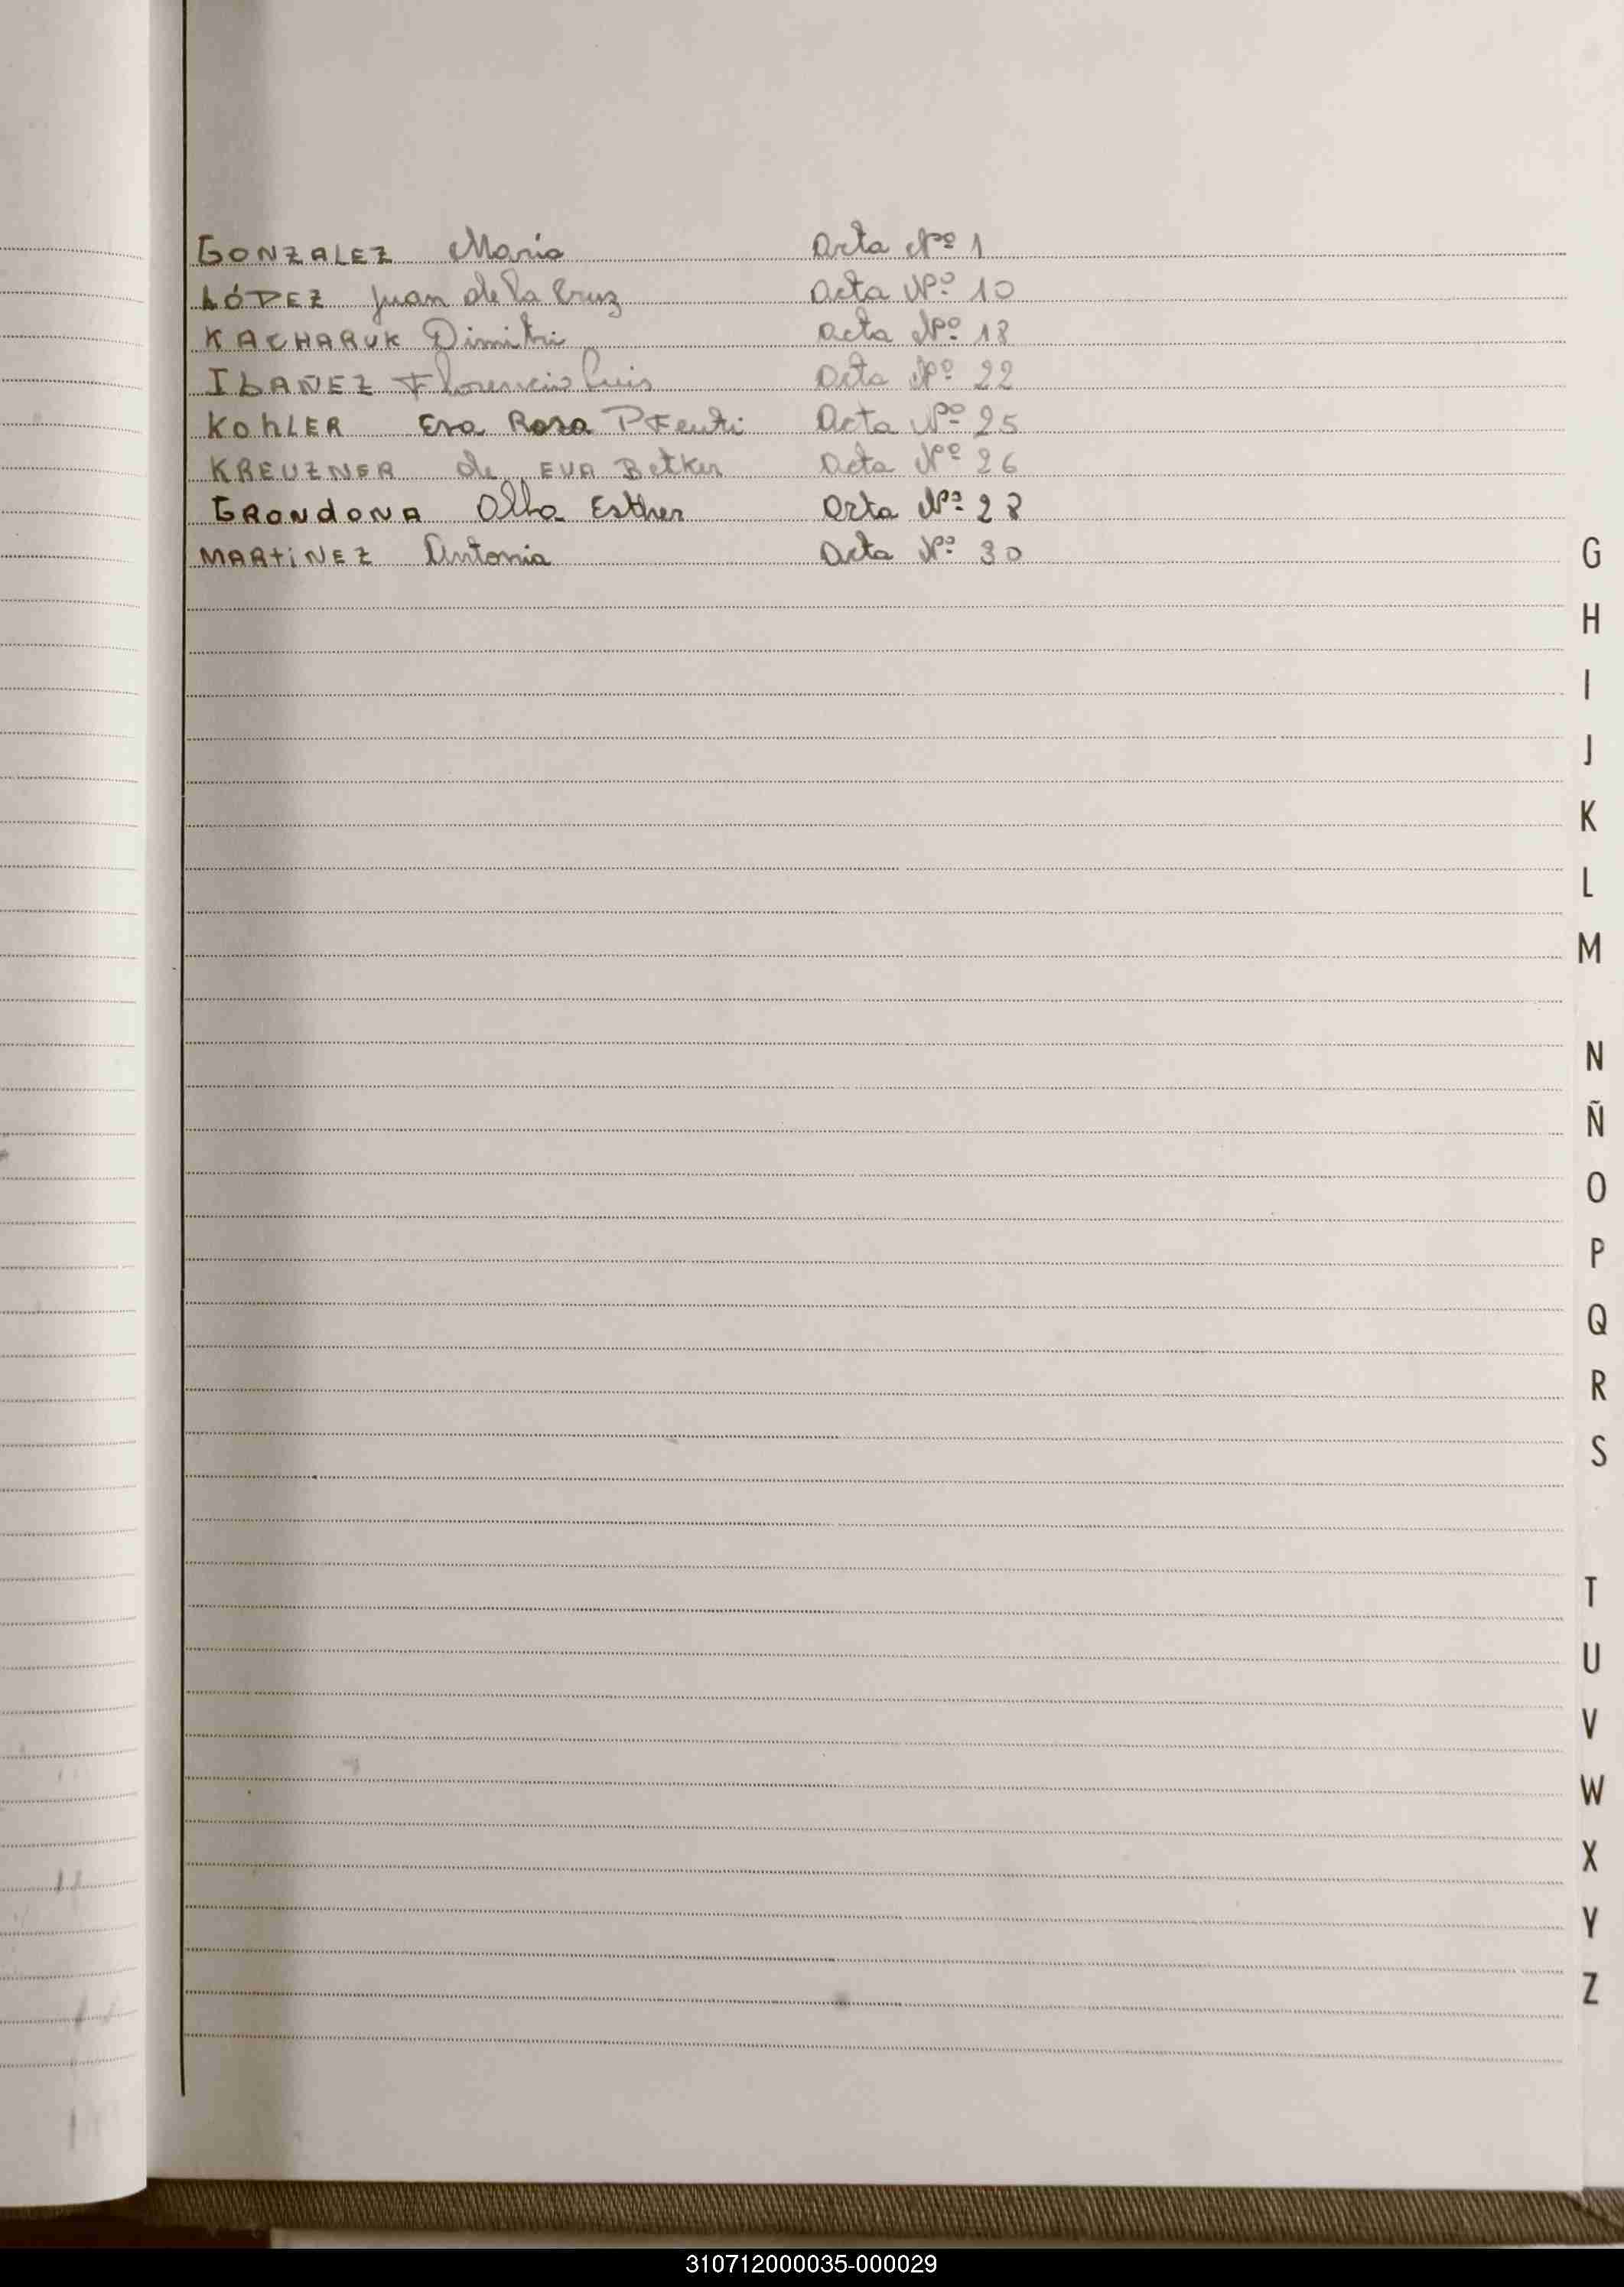 GONZALEZ Maria Acta Nº 1
LÓPEZ Juan de la Cruz Acta Nº 10
KACHARUK Dimitri Acta Nº 18
IBAÑEZ Florencio Luis Acta Nº 22
KohLER Eva Rosa Acta Nº 25
KREUZNER de EVA Betker Acta Nº 26
GRONdONA Alba Esther Acta Nº 28
MARtiNEZ Antonia Acta Nº 30
G
H
I
J
K
L
M
N
Ñ
O
P
Q
R
S
T
U
V
W
X
Y
Z
310712000035-000029